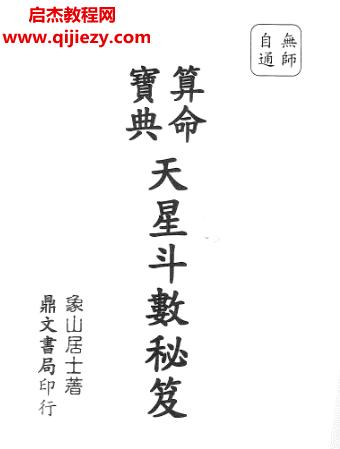 启杰教程网
www.qijiezy.com
無師
自通
算命
寶典
天星斗數秘笈
象山居士著
鼎文書局印行